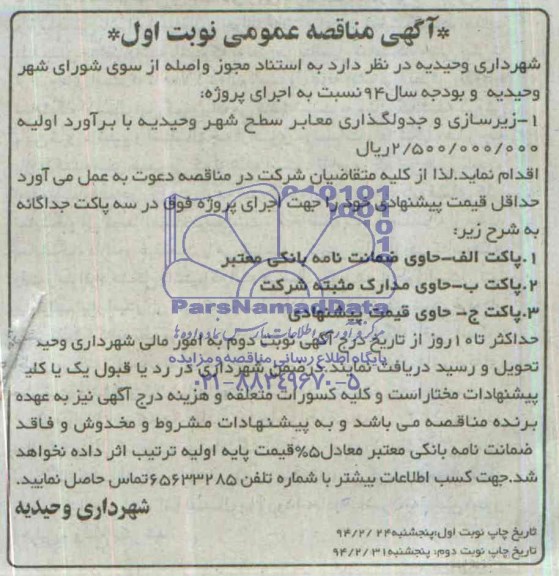 *آگهی مناقصه عمومی نوبت اول*
شهرداری وحیدیه در نظر دارد به استناد مجوز واصله از سوی شورای شهر
وحیدیه و بودجه سال۹۴نسبت به اجرای پروژه:
۱-زیرسازی و جدولگذاری معابر سطح شهر وحیدیه با برآورد اولیه
۲/۵۰۰/۰۰۰/۰۰۰ریال
اقدام نماید.لذا از کلیه متقاضیان شرکت در مناقصه دعوت به عمل می آورد
حداقل قیمت پیشنهادی خود را جهت اجرای پروژه فوق در سه پاکت جداگانه
به شرح زیر:
۱.پاکت الف-حاوی ضمانت نامه بانکی معتبر
۲.پاکت ب-حاوی مدارک مثبته شرکت
ParsNamadData
۳.پاکت ج- حاوی قیمت پیشنهادی
حداکثر تا۱۰روز از تاریخ درج آگهی نوبت دوم به امور مالی شهرداری وحید
پایگاه اطلاع رسانی مناقصه و مزایده
تحویل و رسید دریافت نمایند.درضمن شهرداری در رد یا قبول یک یا کلی
۰۲۱-۸۸۳۴۹۶۷۰-۵
پیشنهادات مختاراست و کلیه کسورات متعلقه و هزینه درج آگهی نیز به عهده
برنده مناقصه می باشد و به پیشنهادات مشروط و مخدوش و فاقد
ضمانت نامه بانکی معتبر معادل۵%قیمت پایه اولیه ترتیب اثر داده نخواهد
شد.جهت کسب اطلاعات بیشتر با شماره تلفن ۶۵۶۳۳۲۸۵تماس حاصل نمایید.
شهرداری وحیدیه
تاریخ چاپ نوبت اول:پنجشنبه۲۴ /۹۴/۲
تاریخ چاپ نوبت دوم: پنجشنبه۳۱ /۹۴/۲